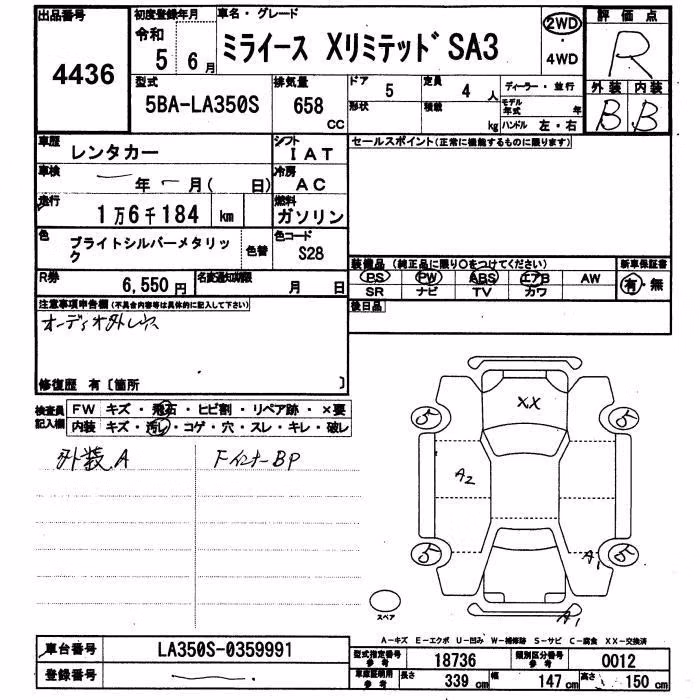 出品番号
4436
初度登録年月
令和
5 6月
車名・グレード
ミライース Xリミテッド SA3
2WD
・
4WD
評価点
R
外装 内装
B B
型式
5BA-LA350S
排気量
658
CC
ドア 5
定員 4 人
ディーラー・並行
形状
積載 kg
モデル年式 年
ハンドル 左・右
車歴
レンタカー
シフト
IAT
セールスポイント(正常に機能するものに限ります)
車検
ー年ー月( 日)
冷房
AC
走行
1万6千184 km
燃料
ガソリン
色
ブライトシルバーメタリック
色替
色コード
S28
装備品 (純正品に限り○をつけてください)
新車保証書
PS PW ABS エアB AW
SR ナビ TV カワ
有・無
R券
6,550円
名変通知期限
月 日
後日品
注意事項申告欄(不具合内容等は具体的に記入して下さい)
オーディオ外レ
修復歴 有〔箇所 〕
検査員記入欄
FW キズ・飛石・ヒビ割・リペア跡・×要
内装 キズ・汚レ・コゲ・穴・スレ・キレ・破レ
外装A
FインナーBP
XX
5
5
A2
5
5
A1
A1
スペア
A-キズ E-エクボ U-凹み W-補修跡 S-サビ C-腐食 XX-交換済
車台番号
LA350S-0359991
登録番号
型式指定番号 参考
18736
類別区分番号 参考
0012
車庫証明用 参考
長さ 339 cm
幅 147 cm
高さ 150 cm